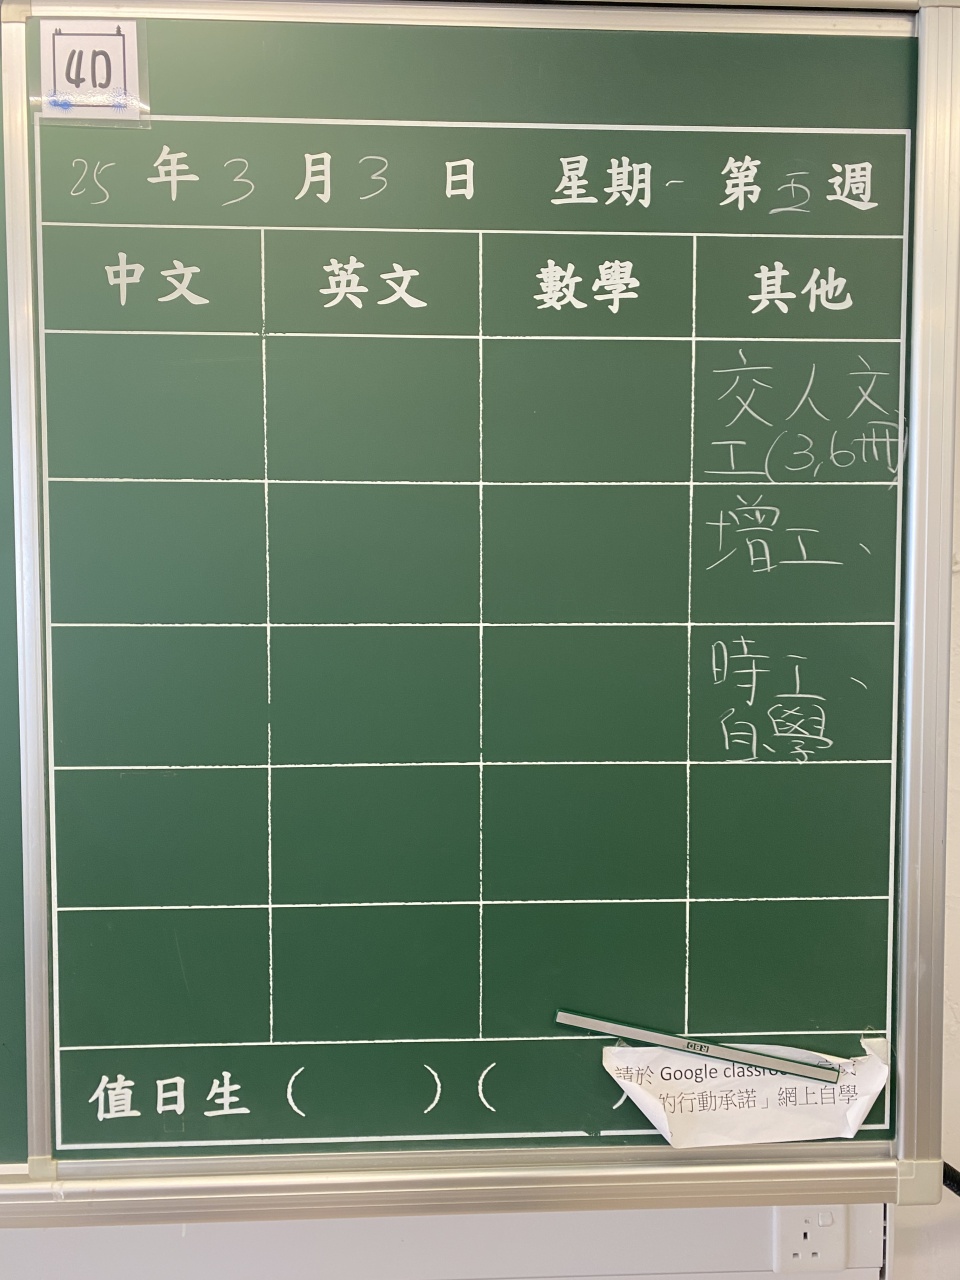 4D
25 年 3 月 3 日 星期一 第五週
中文 英文 數學 其他
交人文
工(3,6冊)
增工、
時工、
自學
值日生 ( ) ( )
RBD
請於 Google
的行動承諾」網上自學